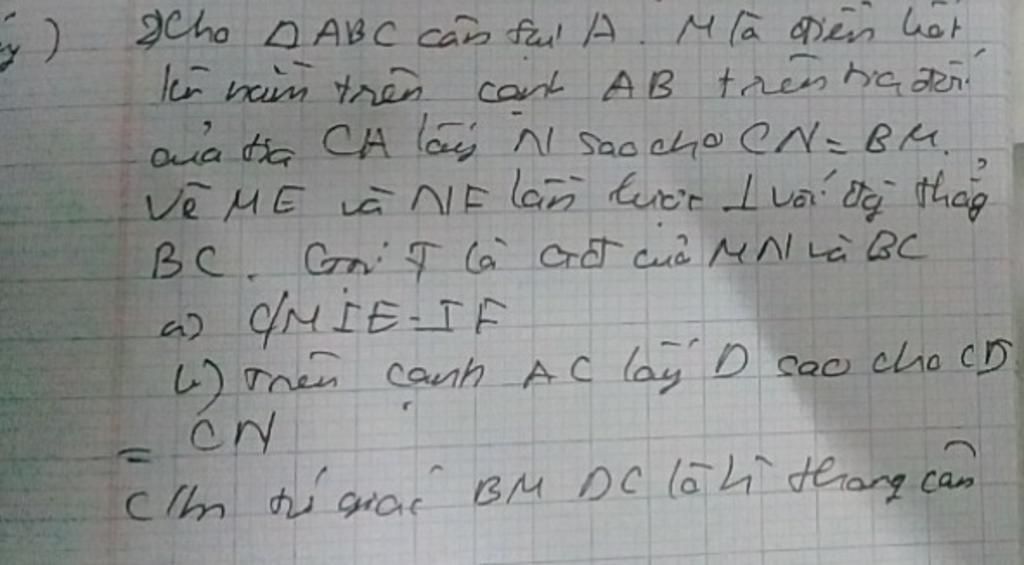 2) Cho Δ ABC cân tại A. M là điểm bất
kì nằm trên cạnh AB trên tia đối
của tia CA lấy N sao cho CN = BM.
Vẽ ME và NF lần lượt ⊥ với đg thẳg
BC. Gọi I là GĐ của MN và BC
a) C/M IE = IF
b) Trên cạnh AC lấy D sao cho CD
= CN
C/m tứ giác BMDC là h thang cân